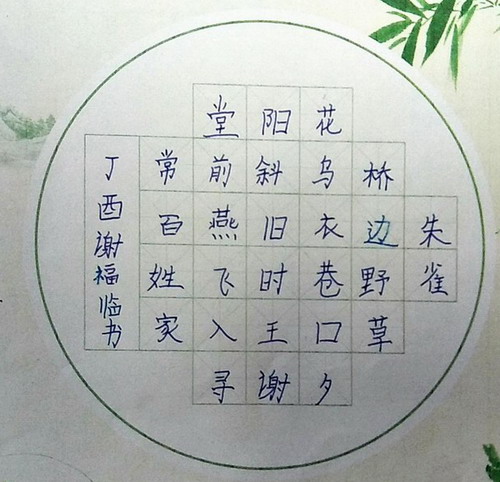 朱雀
桥边野草
花乌衣巷口夕
阳斜旧时王谢
堂前燕飞入寻
常百姓家
丁酉谢福临书